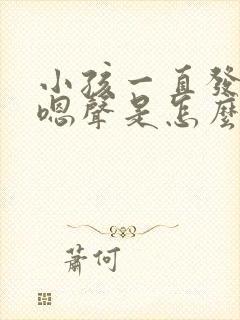 小孩一直發
嗯聲是怎麼
蕭何